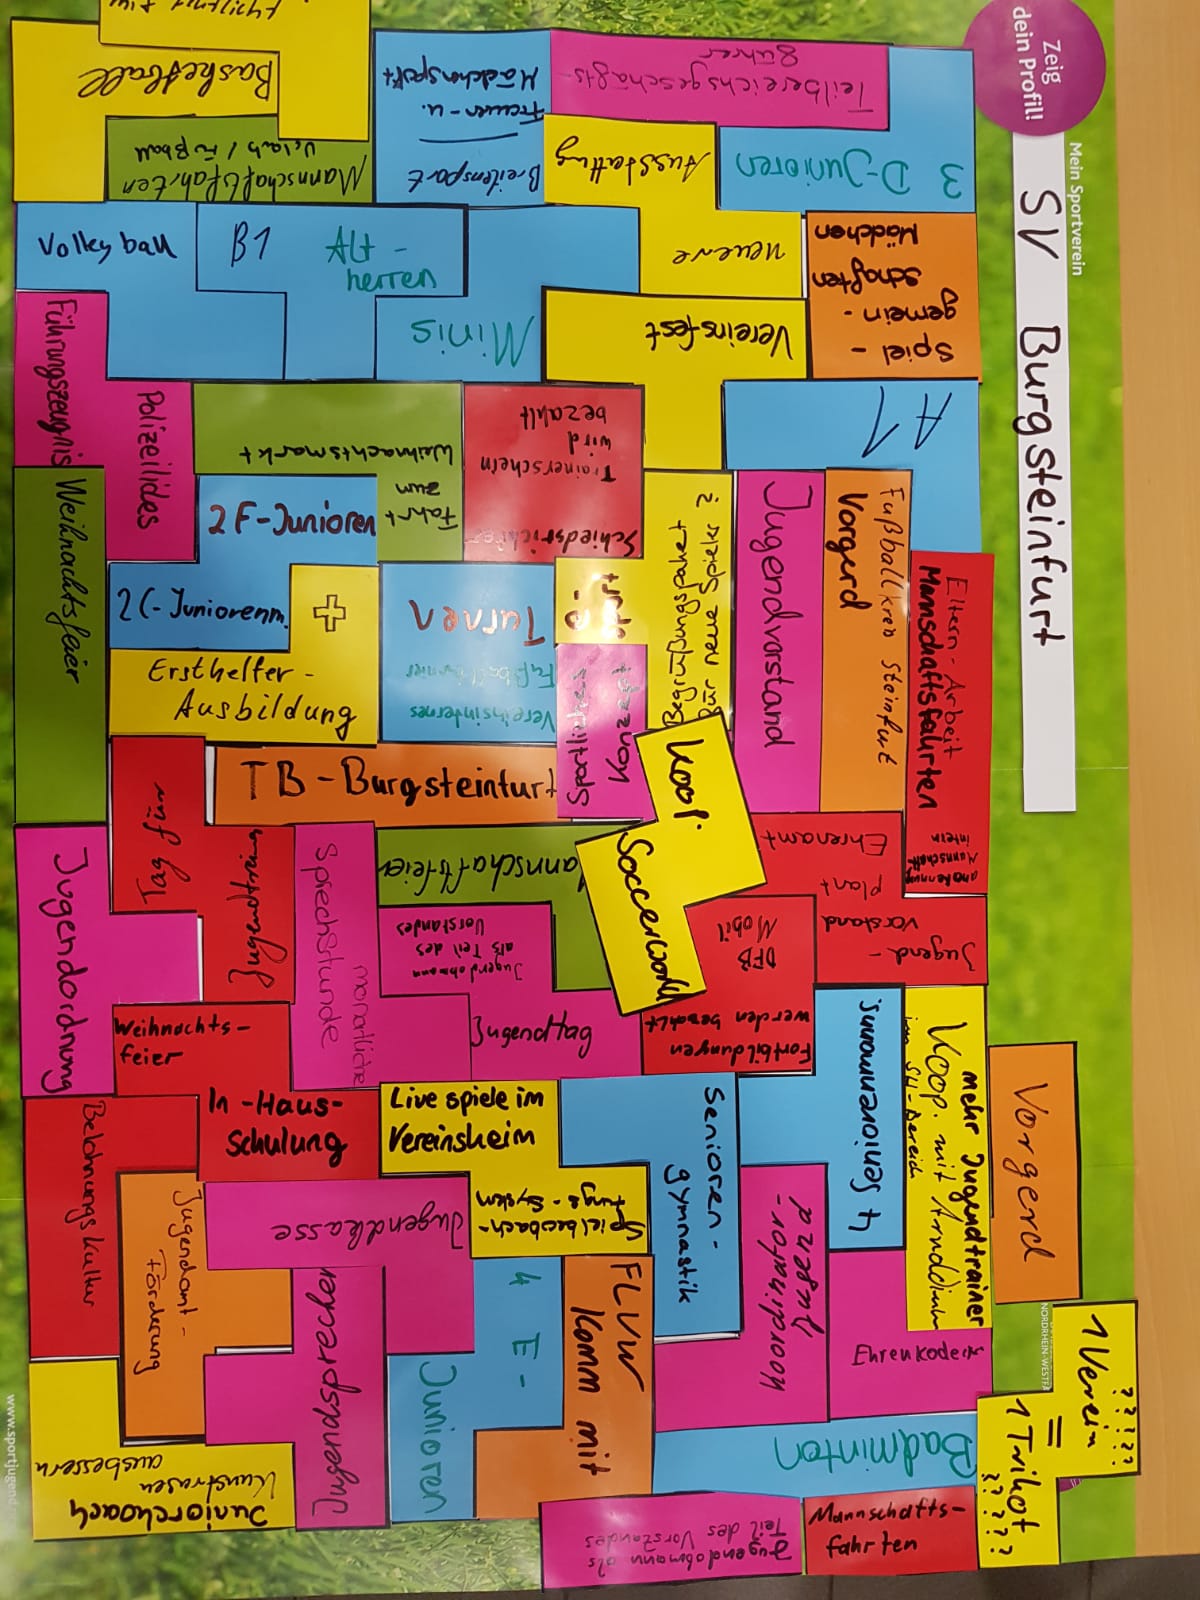 Zeig
dein Profil!
Mein Sportverein
SV Burgsteinfurt
Basketball
Mannschaftsfahrten
Urlaub / Fußball
Frauen- u.
Mädchensport
Breitensport
Teilbereichsgeschäfts-
führer
Ausstattung
3 D-Junioren
Volleyball
B1
Alt-
herren
Minis
neuere
Vereinsfest
Mädchen
Spiel-
gemein-
schaften
A1
Führungszeugnis
Polizeilides
Fahrt
zum
Weihnachtsmarkt
Trainerschein
wird
bezahlt
Schiedsrichter
Weihnachtsfeier
2 F-Junioren
2 C-Juniorenm.
+
Ersthelfer-
Ausbildung
Turnen
Vereinsinternes
Fußballturnier
Sportliches
Konzept
Begrüßungspaket
für neue Spieler?
Jugendvorstand
Vorgerd
Fußballkreis Steinfurt
Eltern-Arbeit
Mannschaftsfahrten
Mannschaft
intern
TB-Burgsteinfurt
Koop.
Soccerworld
Tag für
Jugendtraining
Jugendordnung
Sprechstunde
monatliche
Mannschaftsfeier
Jugendobmann
als Teil des
Vorstandes
Jugendtag
Ehrenamt
Jugend-
vorstand
plant
DFB
Mobil
Fortbildungen
werden bezahlt
Weihnachts-
feier
In-Haus-
Schulung
Belohnungskultur
Live spiele im
Vereinsheim
Spielbeobach-
tungs-System
Senioren-
gymnastik
4 Seniorenmanns.
mehr Jugendtrainer
Koop. mit Arnoldinum
im SH-Bereich
Vorgerd
Jugendamt-
förderung
Jugendkasse
Jugendsprecher
4 E-
Junioren
FLVW
Komm mit
Koordinator-
Jugend
Ehrenkodex
Badminton
1 Verein
=
1 Trikot
?????
?????
NORDRHEIN-WESTF
Juniorcoach
Kunstrasen
ausbessern
Jugendobmann als
Teil des Vorstandes
Mannschafts-
fahrten
www.sportjugend